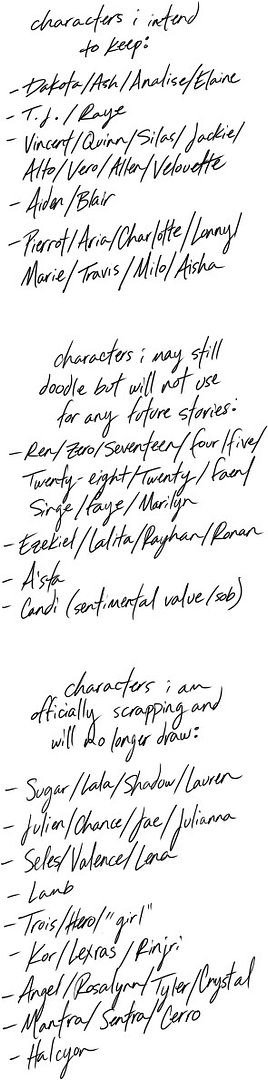 characters i intend
to keep:
- Dakota/Ash/Analise/Elaine
- T.J./Raye
- Vincent/Quinn/Silas/Jackie/
Alto/Vero/Allen/Velouette
- Aiden/Blair
- Pierrot/Aria/Charlotte/Lenny/
Marie/Travis/Milo/Aisha
characters i may still
doodle but will not use
for any future stories:
- Ren/Zero/Seventeen/four/five/
Twenty-eight/Twenty/Faen/
Singe/Faye/Marilyn
- Ezekiel/Lalita/Rayhan/Ronan
- A'sfa
- Candi (sentimental value/sob)
characters i am
officially scrapping and
will no longer draw:
- Sugar/Lala/Shadow/Lauren
- Julien/Chance/Jae/Julianna
- Seles/Valence/Lena
- Lamb
- Trois/Hero/"girl"
- Kor/Lexras/Rinjri
- Angel/Rosalynn/Tyler/Crystal
- Mantra/Sentra/Cerro
- Halcyon